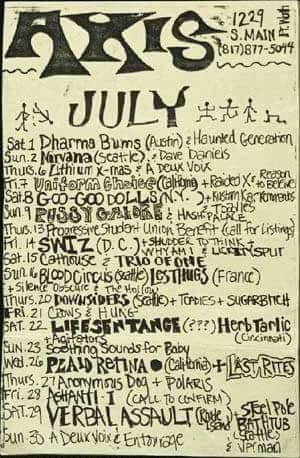 AXIS
1229
S. MAIN
Ft. Worth
(817) 877-5044
JULY
Sat. 1 Dharma Bums (Austin) & Haunted Generation
Sun. 2 Nirvana (Seattle) & Dave Daniels
Thurs. 6 Lithium X-mas & A Deux Voix
Fri. 7 Uniform Choice (California) + Raided X + Reason to Believe
Sat. 8 GOO-GOO DOLLS (N.Y.)
Sun. 9 PUSSY GALORE &
Thurs. 13 Progressive Student Union Benefit (call for listings)
Fri. 14 SWIZ (D.C.) + SHUDDER TO THINK +
WHY AM I &
Sat. 15 Cathouse & TRUE DE ONE
Sun. 16 BLOOD CIRCUS (Seattle) LES THUGS (France)
+ Silence Obscure & The Hollow
Thurs. 20 DOWNSIDERS (Seattle) + TOADIES + SUGARBITCH
FRI. 21 CROWS & HUNG
SAT. 22 LIFE SENTANCE (???) Herb Tarlic
+ Agitators (Cincinnati)
SUN. 23 Soothing Sounds for Baby
Wed. 26 PLAID RETINA (California) + LAST RITES
Thurs. 27 Anonymous Dog + POLARIS
Fri. 28 ASHANTI-I (CALL TO CONFIRM)
SAT. 29 VERBAL ASSAULT (Rhode Island) + STEEL POLE
BATHTUB
(Seattle)
Sun. 30 A Deux Voix & Entourage & Vpr man